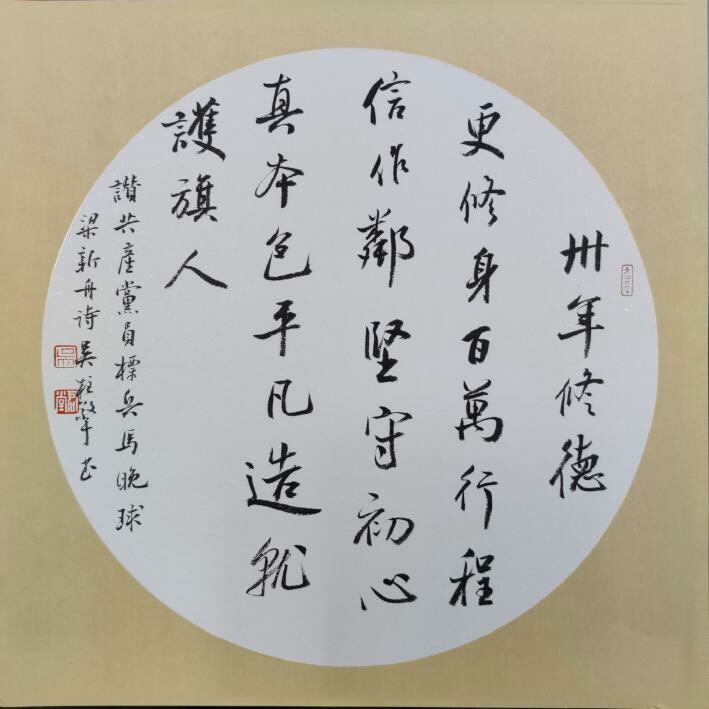 卅年修德
更修身百萬行程
信作鄰堅守初心
真本色平凡造就
護旗人
讃共產黨員標兵馬晚球
梁新舟诗吴柱